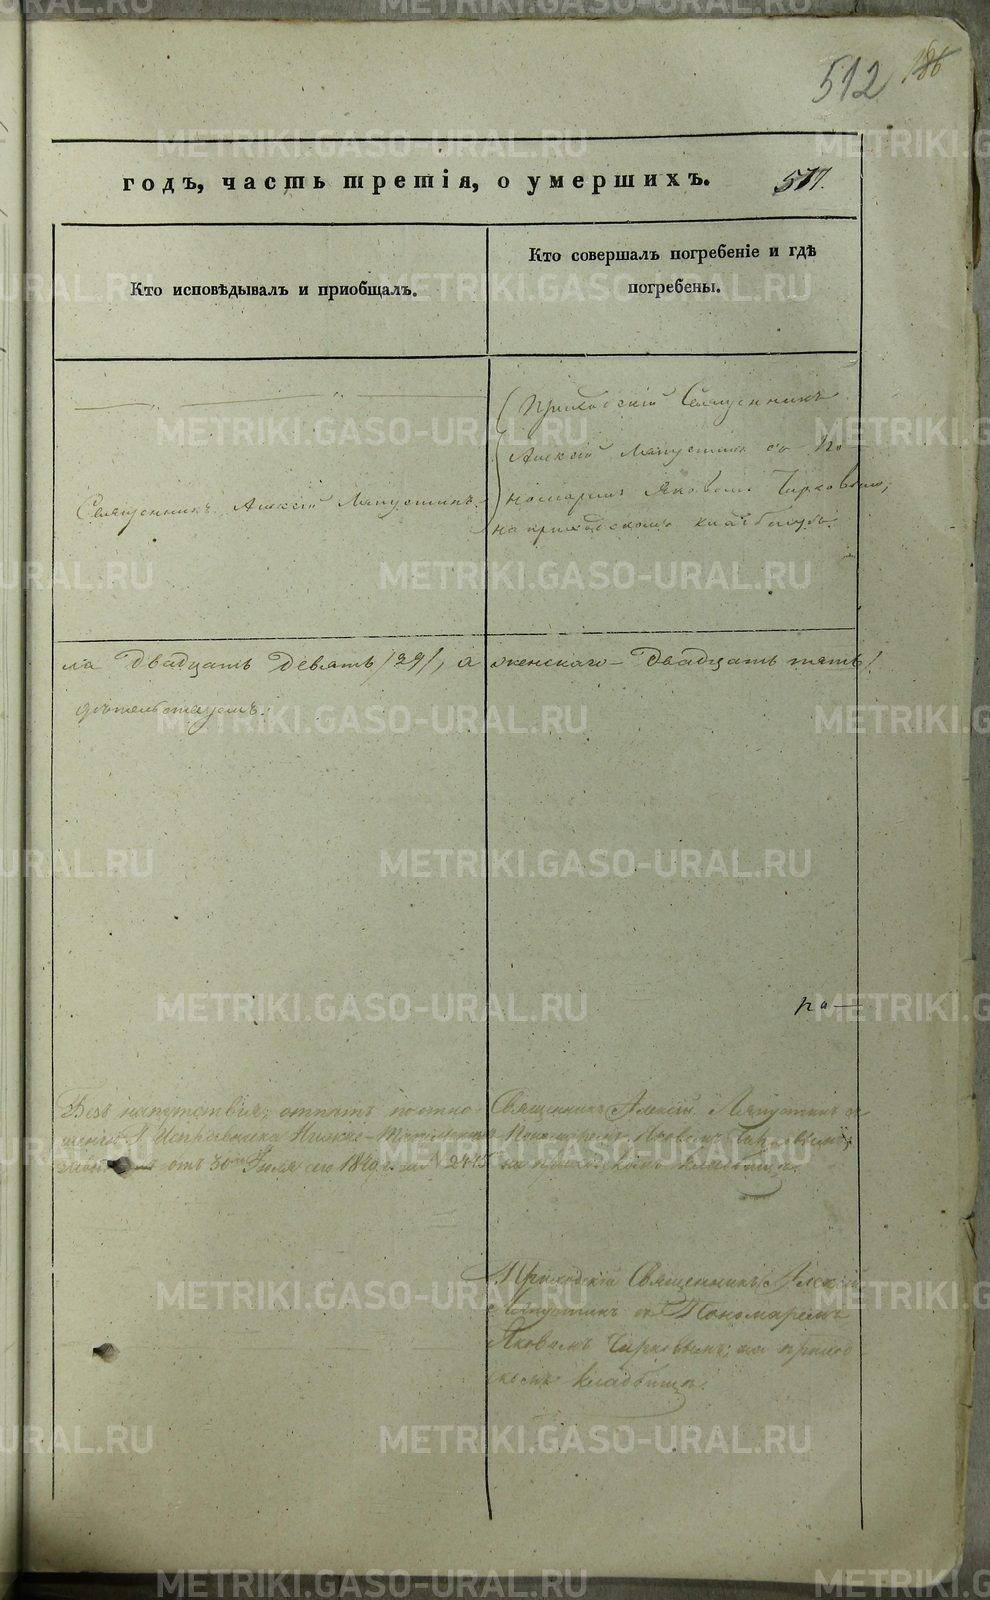 512 186
годъ, часть третія, о умершихъ. 517.
Кто исповѣдывалъ и приобщалъ.
Кто совершалъ погребеніе и гдѣ
погребены.
Священникъ Алексій Ляпустинъ.
Приходскій Священникъ
Алексій Ляпустинъ съ По-
номаремъ Яковомъ Чирковымъ,
на приходскомъ кладбищѣ.
ла двадцать девять /29/, а женскаго - двадцать пять/
по-
Безъ напутствія; отпѣтъ по отно-
шенію Исправника Нижне-
отъ 30 Іюля сего 18 г. за № 
Священникъ Алексій Ляпустинъ съ
Пономаремъ Яковомъ Чирковымъ;
на приходскомъ кладбищѣ.
Приходскій Священникъ Алексій
Ляпустинъ съ Пономаремъ
Яковомъ Чирковымъ; на приход
скомъ кладбищѣ.
METRIKI.GASO-URAL.RU